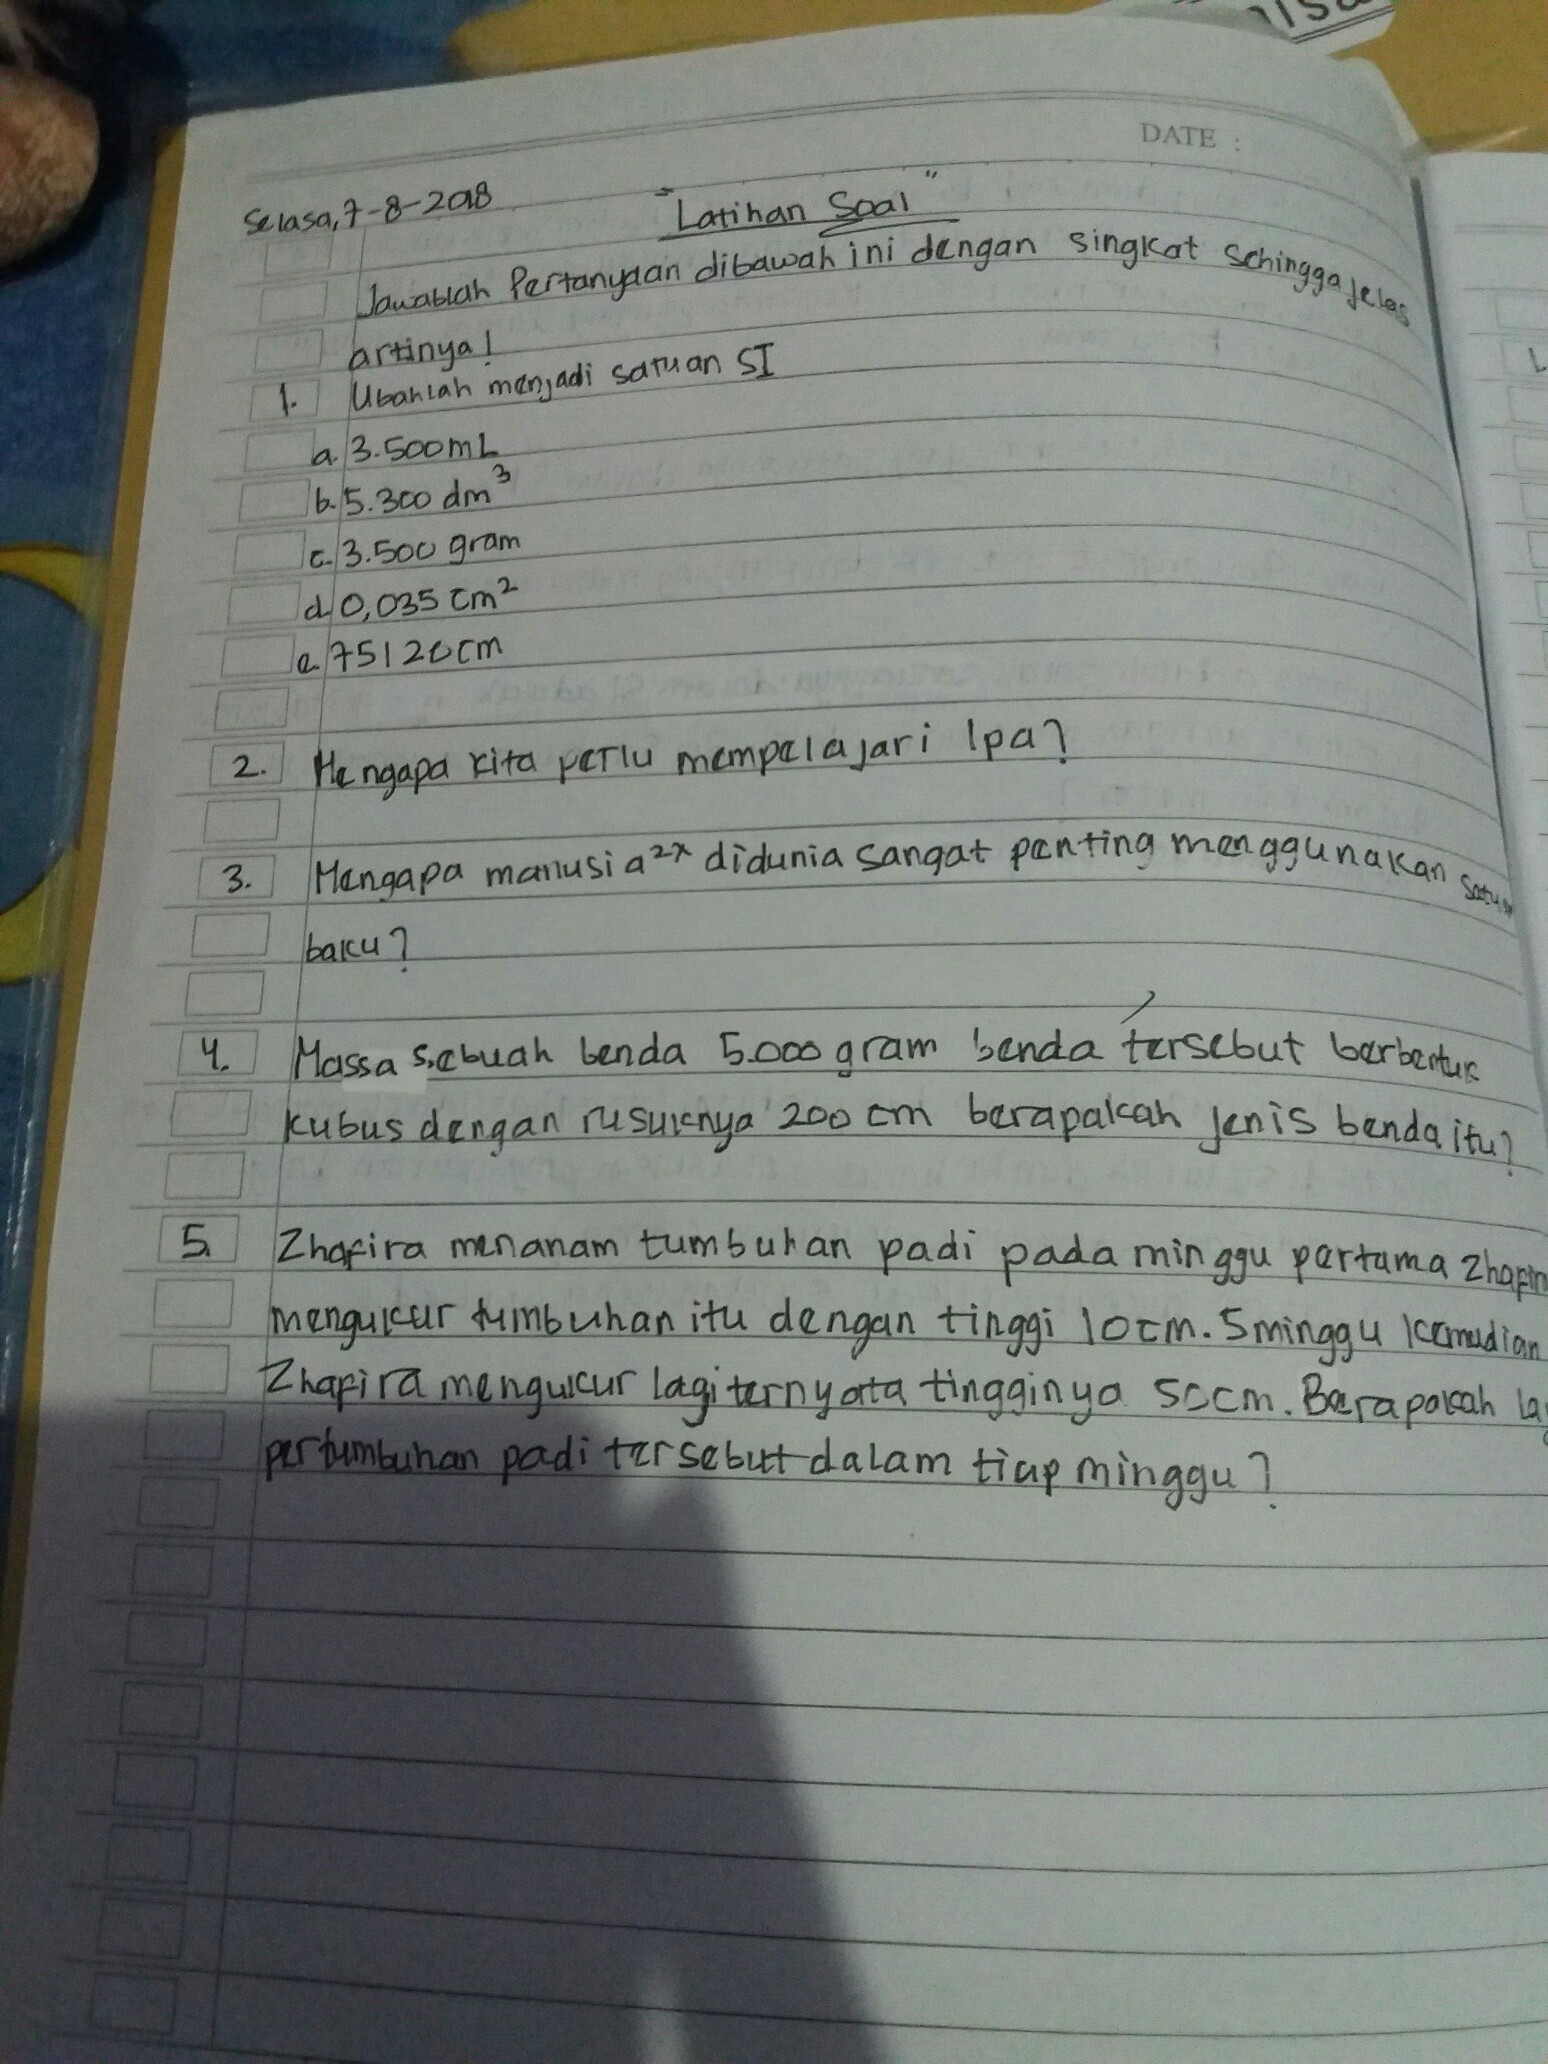 DATE :
Selasa, 7-8-2018
"Latihan Soal"
Jawablah Pertanyaan dibawah ini dengan singkat sehingga jelas
artinya!
1. Ubahlah menjadi satuan SI
a. 3.500 mL
b. 5.300 dm³
c. 3.500 gram
d. 0,035 cm²
e. 75120 cm
2. Mengapa kita perlu mempelajari Ipa?
3. Mengapa manusia²ˣ didunia sangat penting menggunakan satuan
baku?
4. Massa sebuah benda 5.000 gram benda tersebut berbentuk
kubus dengan rusuknya 200 cm berapakah jenis benda itu?
5. Zhafira menanam tumbuhan padi pada minggu pertama
mengukur tumbuhan itu dengan tinggi 10 cm. 5 minggu kemudian
Zhafira mengukur lagi ternyata tingginya 50 cm. Berapakah
pertumbuhan padi tersebut dalam tiap minggu?